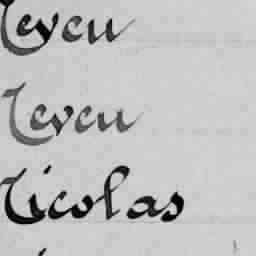 Neveu
Neveu
Nicolas